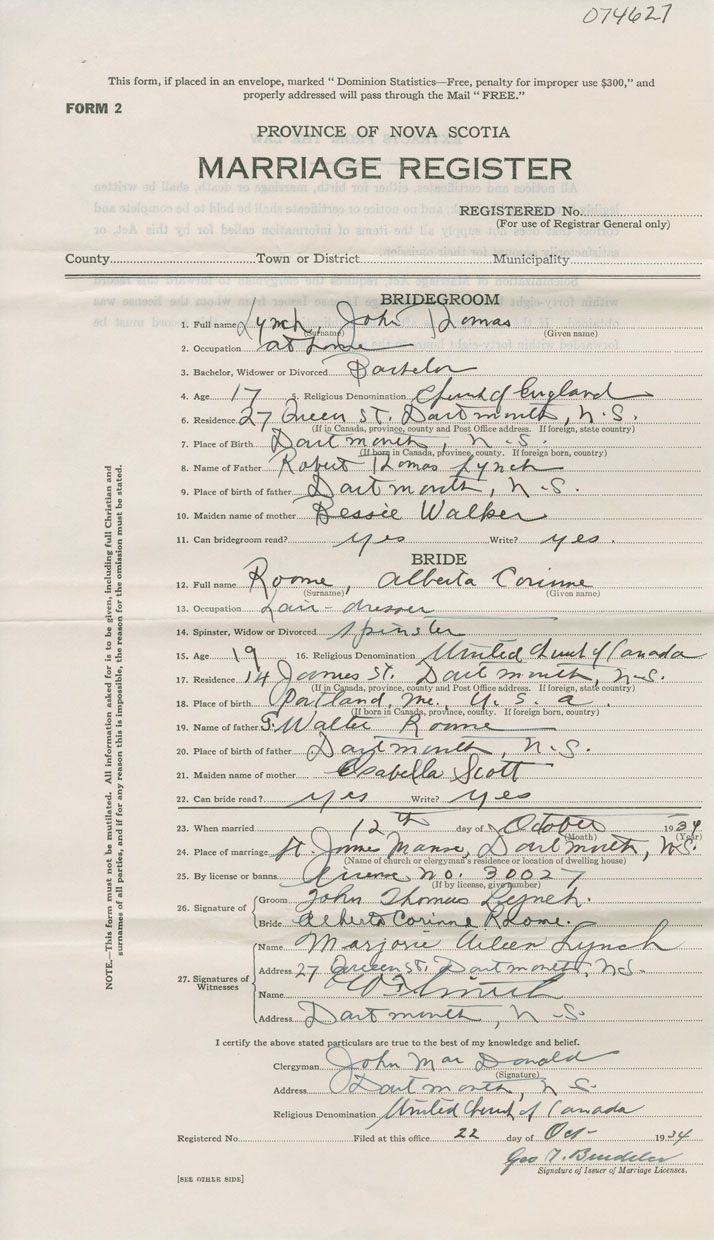 074627
This form, if placed in an envelope, marked " Dominion Statistics—Free, penalty for improper use $300," and
properly addressed will pass through the Mail " FREE."
FORM 2
PROVINCE OF NOVA SCOTIA
MARRIAGE REGISTER
REGISTERED No.
(For use of Registrar General only)
County Town or District Municipality
BRIDEGROOM
1. Full name Lynch, John Thomas
(Surname) (Given name)
2. Occupation at home
3. Bachelor, Widower or Divorced Bachelor
4. Age 17 5. Religious Denomination Church of England
6. Residence 27 Queen St. Dartmouth, N.S.
(If in Canada, province, county and Post Office address. If foreign, state country)
7. Place of Birth Dartmouth, N.S.
(If born in Canada, province, county. If foreign born, country)
8. Name of Father Robert Thomas Lynch
9. Place of birth of father Dartmouth, N.S.
10. Maiden name of mother Bessie Walker
11. Can bridegroom read? yes Write? yes.
BRIDE
12. Full name Roome, Alberta Corinne
(Surname) (Given name)
13. Occupation Hair-dresser
14. Spinster, Widow or Divorced Spinster
15. Age 19 16. Religious Denomination United Church of Canada
17. Residence 14 James St. Dartmouth, N.S.
(If in Canada, province, county and Post Office address. If foreign, state country)
18. Place of birth Portland, Me., U.S.A.
(If born in Canada, province, county. If foreign born, country)
19. Name of father G. Walter Roome
20. Place of birth of father Dartmouth, N.S.
21. Maiden name of mother Isabella Scott
22. Can bride read? yes Write? yes
23. When married 12th day of October 1934
(Month) (Year)
24. Place of marriage St. James Manse, Dartmouth, N.S.
(Name of church or clergyman's residence or location of dwelling house)
25. By license or banns License No. 30027
(If by license, give number)
26. Signature of
Groom John Thomas Lynch.
Bride Alberta Corinne Roome.
27. Signatures of Witnesses
Name Marjorie Aileen Lynch
Address 27 Queen St. Dartmouth, N.S.
Name Smith
Address Dartmouth, N.S.
I certify the above stated particulars are true to the best of my knowledge and belief.
Clergyman John MacDonald
(Signature)
Address Dartmouth, N.S.
Religious Denomination United Church of Canada
Registered No. Filed at this office 22 day of Oct- 1934
Geo
Signature of Issuer of Marriage Licenses.
[SEE OTHER SIDE]
NOTE.—This form must not be mutilated. All information asked for is to be given, including full Christian and
surnames of all parties, and if for any reason this is impossible, the reason for the omission must be stated.